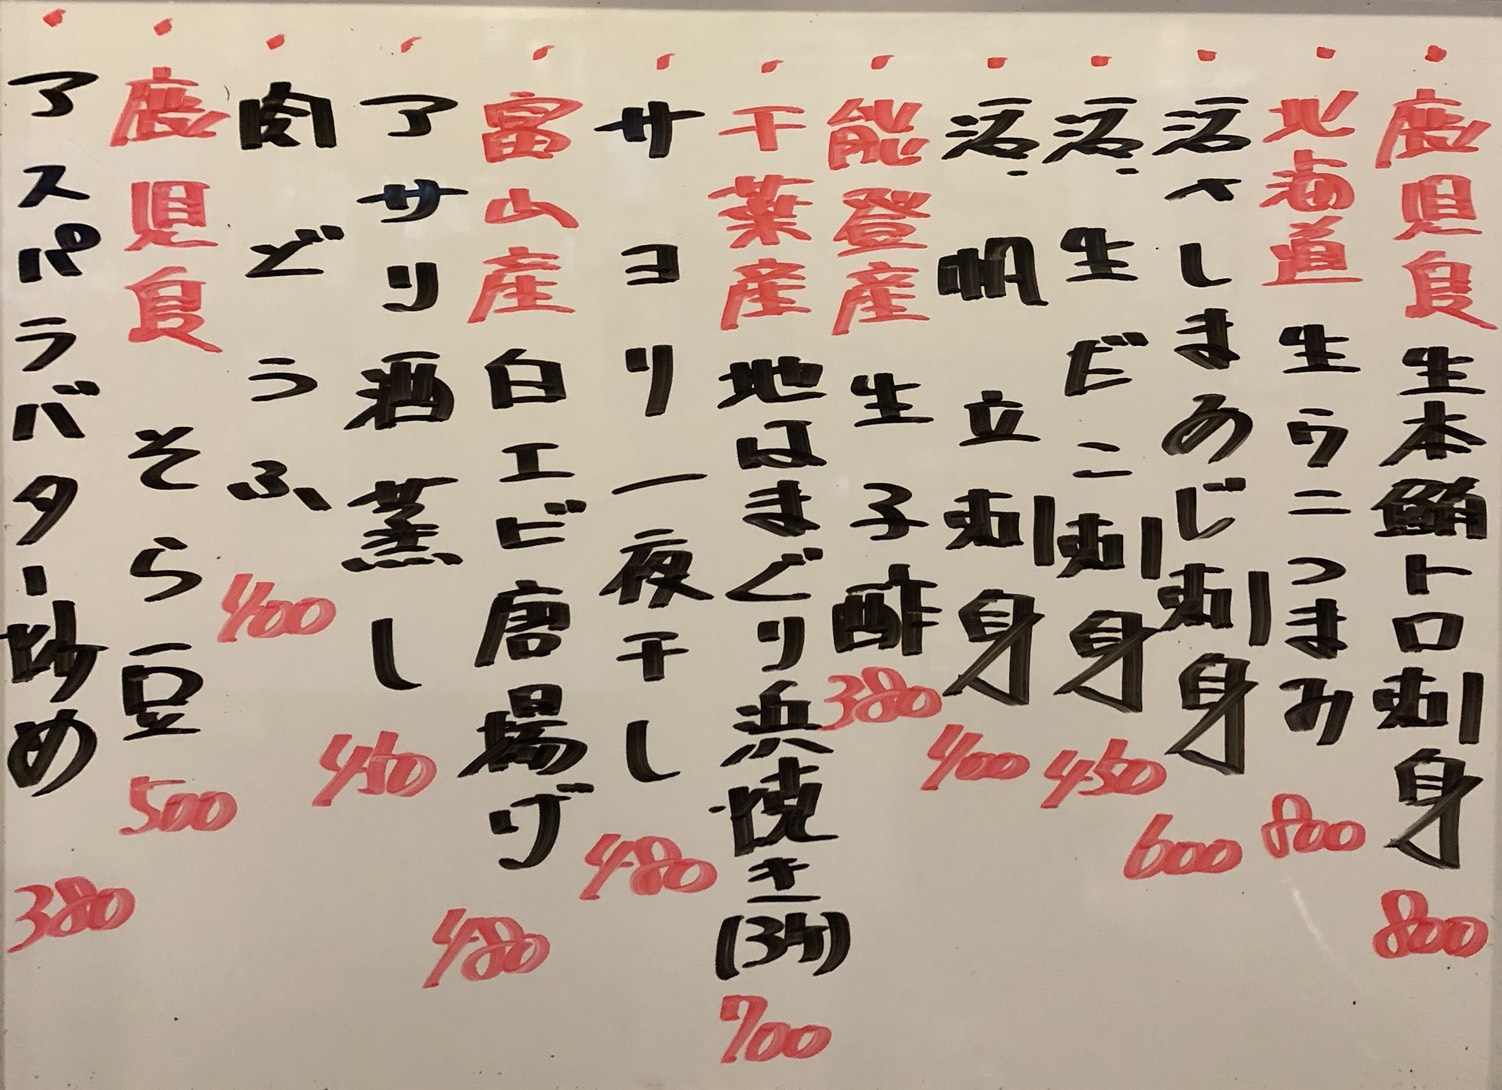 鹿児島 生本鮪トロ刺身 800
北海道 生ウニつまみ 800
活〆しまあじ刺身 600
活・生だこ刺身 450
活・帆立刺身 400
能登産 生子酢 380
千葉産 地はまぐり浜焼き(3ヶ) 700
サヨリ一夜干し 480
富山産 白エビ唐揚げ 480
アサリ酒蒸し 450
肉どうふ 400
鹿児島 そら豆 500
アスパラバター炒め 380